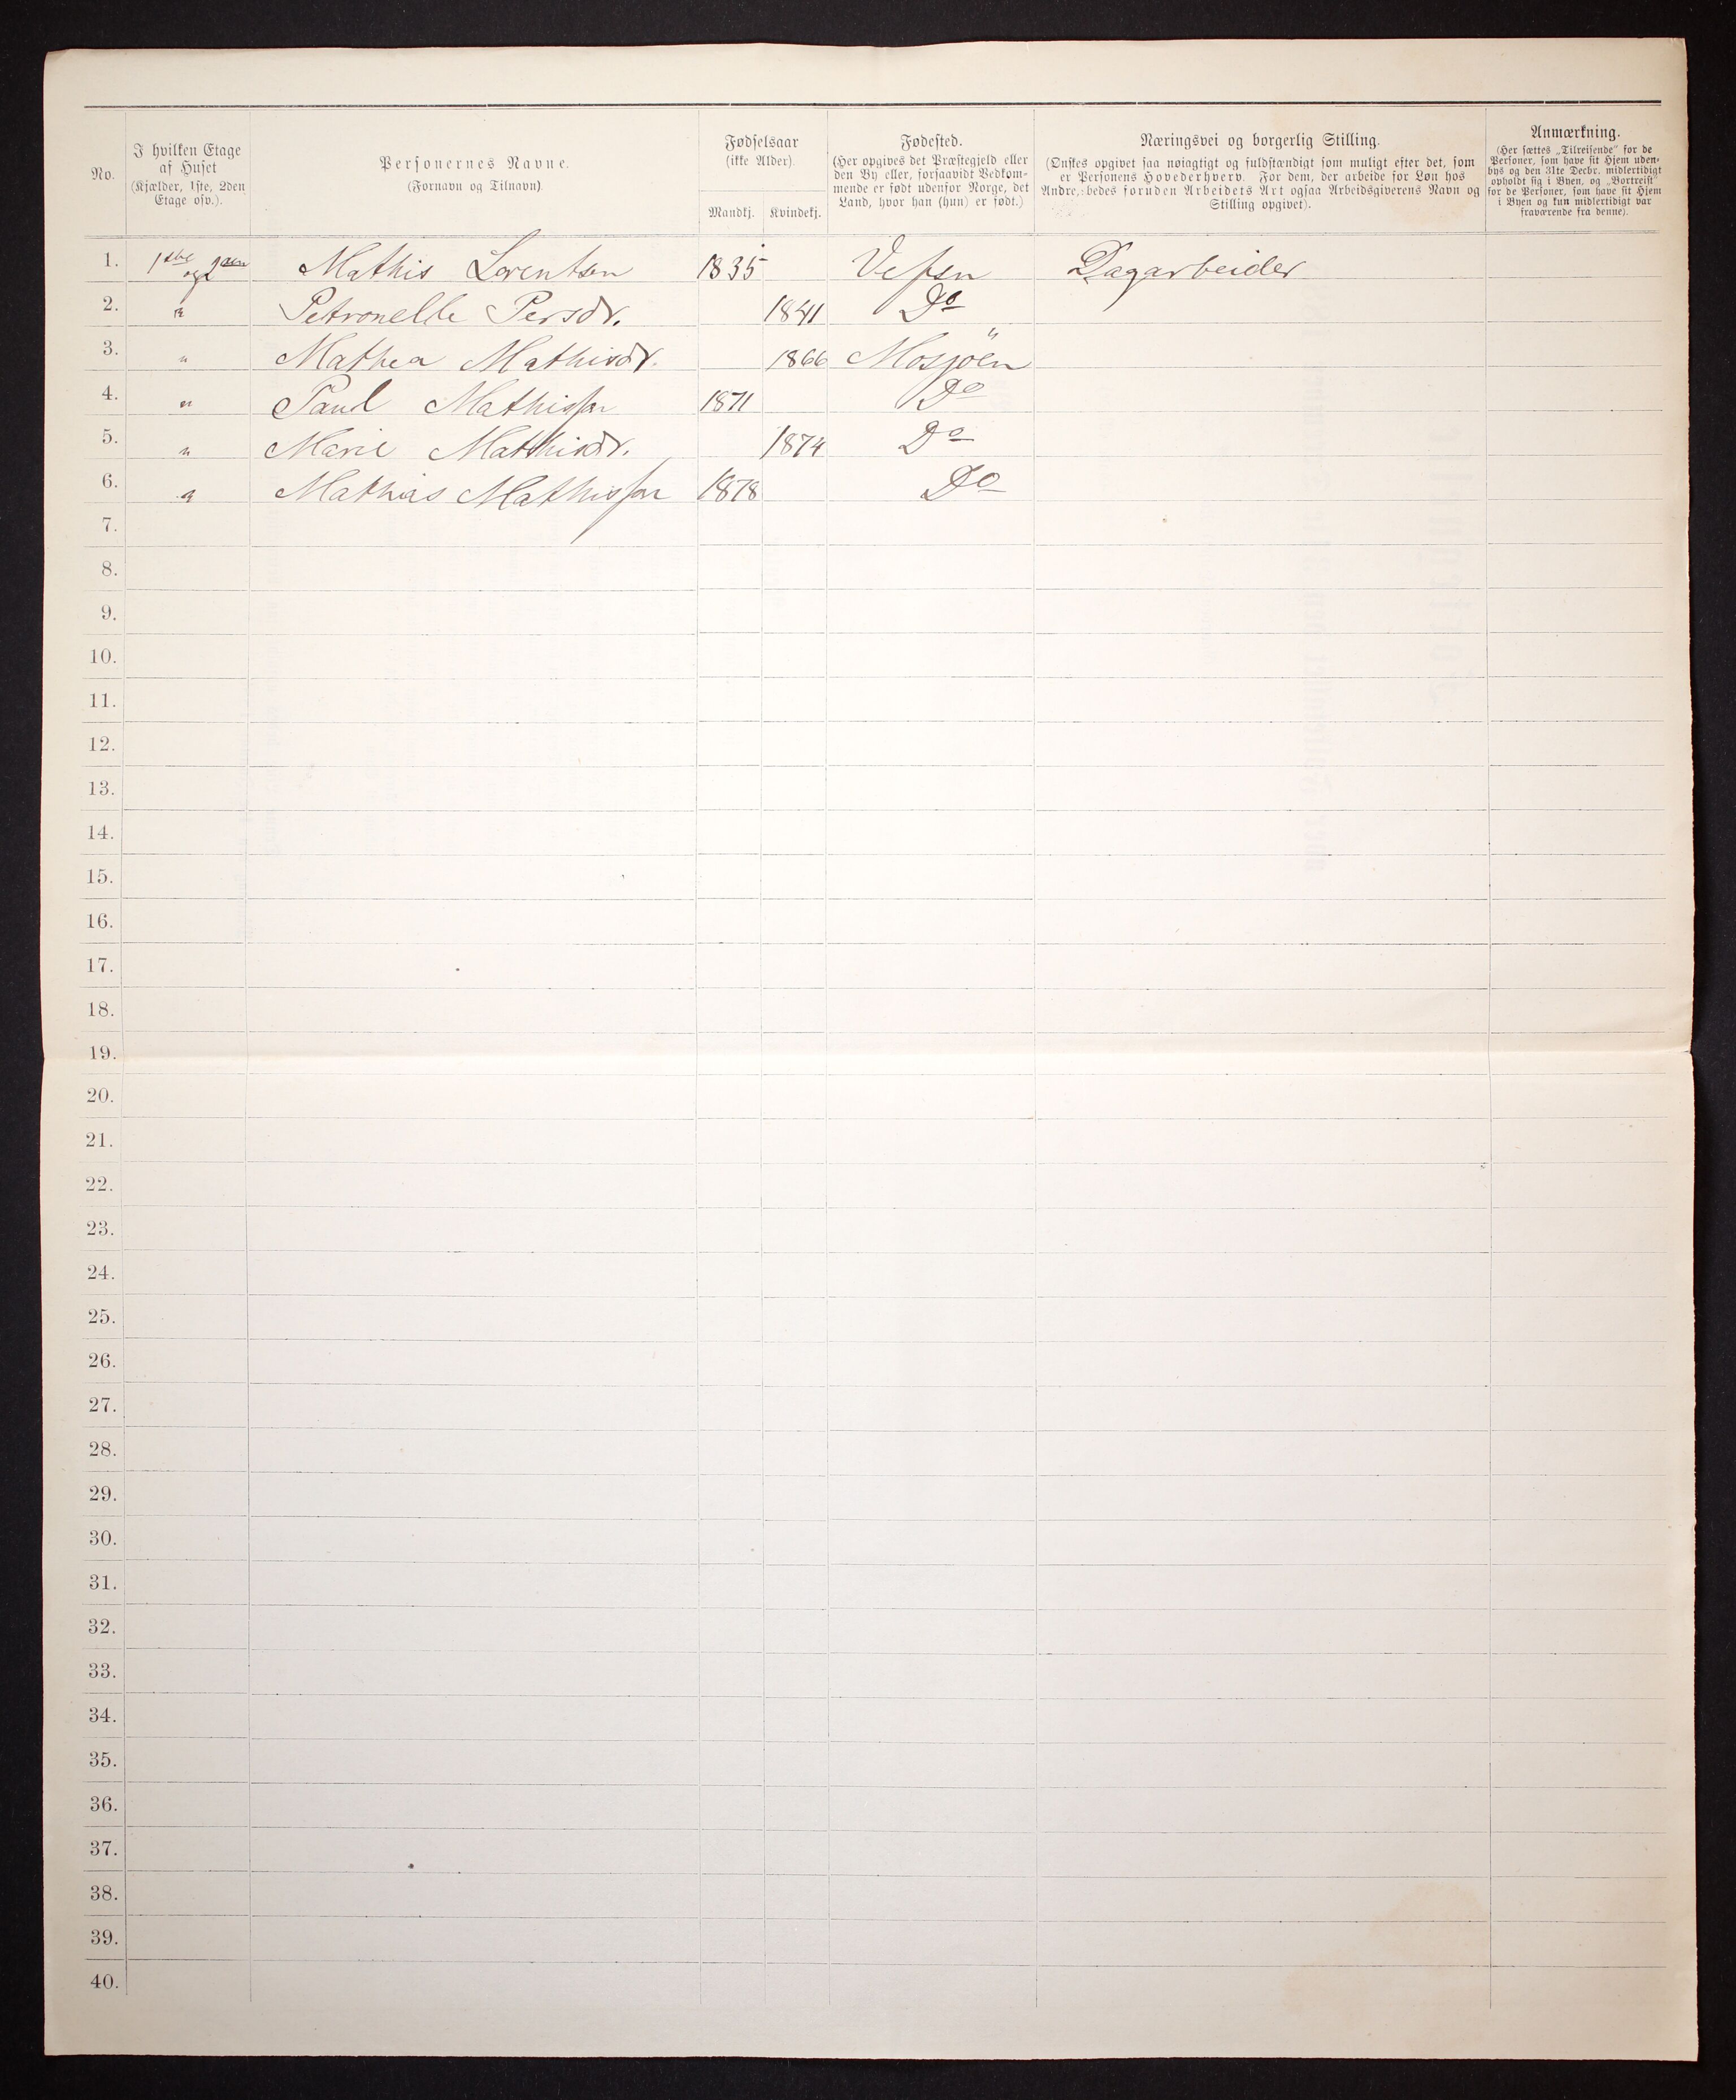 No.
I hvilken Etage
af Huset
(Kjælder, 1ste, 2den
Etage osv.).
Personernes Navne.
(Fornavn og Tilnavn).
Fødselsaar
(ikke Alder).
Mandkj. Kvindekj.
Fødested.
(Her opgives det Præstegjeld eller
den By eller, forsaavidt Vedkom-
mende er født udenfor Norge, det
Land, hvor han (hun) er født.)
Næringsvei og borgerlig Stilling.
(Ønskes opgivet saa nøiagtigt og fuldstændigt som muligt efter det, som
er Personens Hovederhverv. For dem, der arbeide for Løn hos
Andre, bedes foruden Arbeidets Art ogsaa Arbeidsgiverens Navn og
Stilling opgivet).
Anmærkning.
(Her sættes „Tilreisende" for de
Personer, som have sit Hjem uden-
bys og den 31te Decbr. midlertidigt
opholdt sig i Byen, og „Bortreist"
for de Personer, som have sit Hjem
i Byen og kun midlertidigt var
fraværende fra denne).
1. 1ste og 2den Mathis Lorentsen 1835 Vefsen Dagarbeider
2. " Petronelle Persdr. 1841 Do
3. " Mathea Mathisdr. 1866 Mosjöen
4. " Paul Mathissen 1871 Do
5. " Marie Mathisdr. 1874 Do
6. " Mathias Mathissen 1878 Do
7.
8.
9.
10.
11.
12.
13.
14.
15.
16.
17.
18.
19.
20.
21.
22.
23.
24.
25.
26.
27.
28.
29.
30.
31.
32.
33.
34.
35.
36.
37.
38.
39.
40.